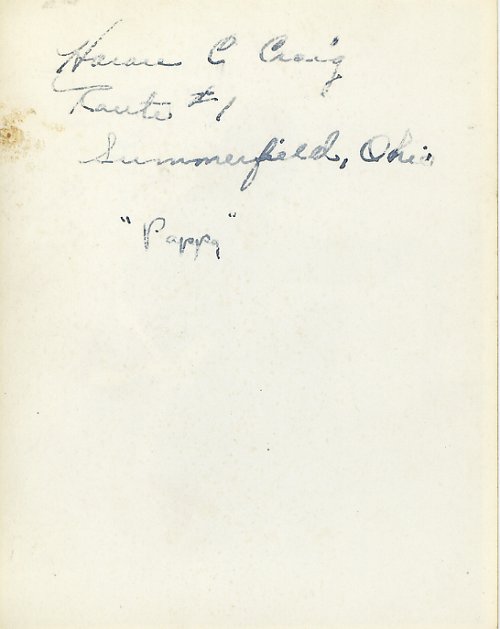 Horace C Craig
Route #1
Summerfield, Ohio
"Pappy"